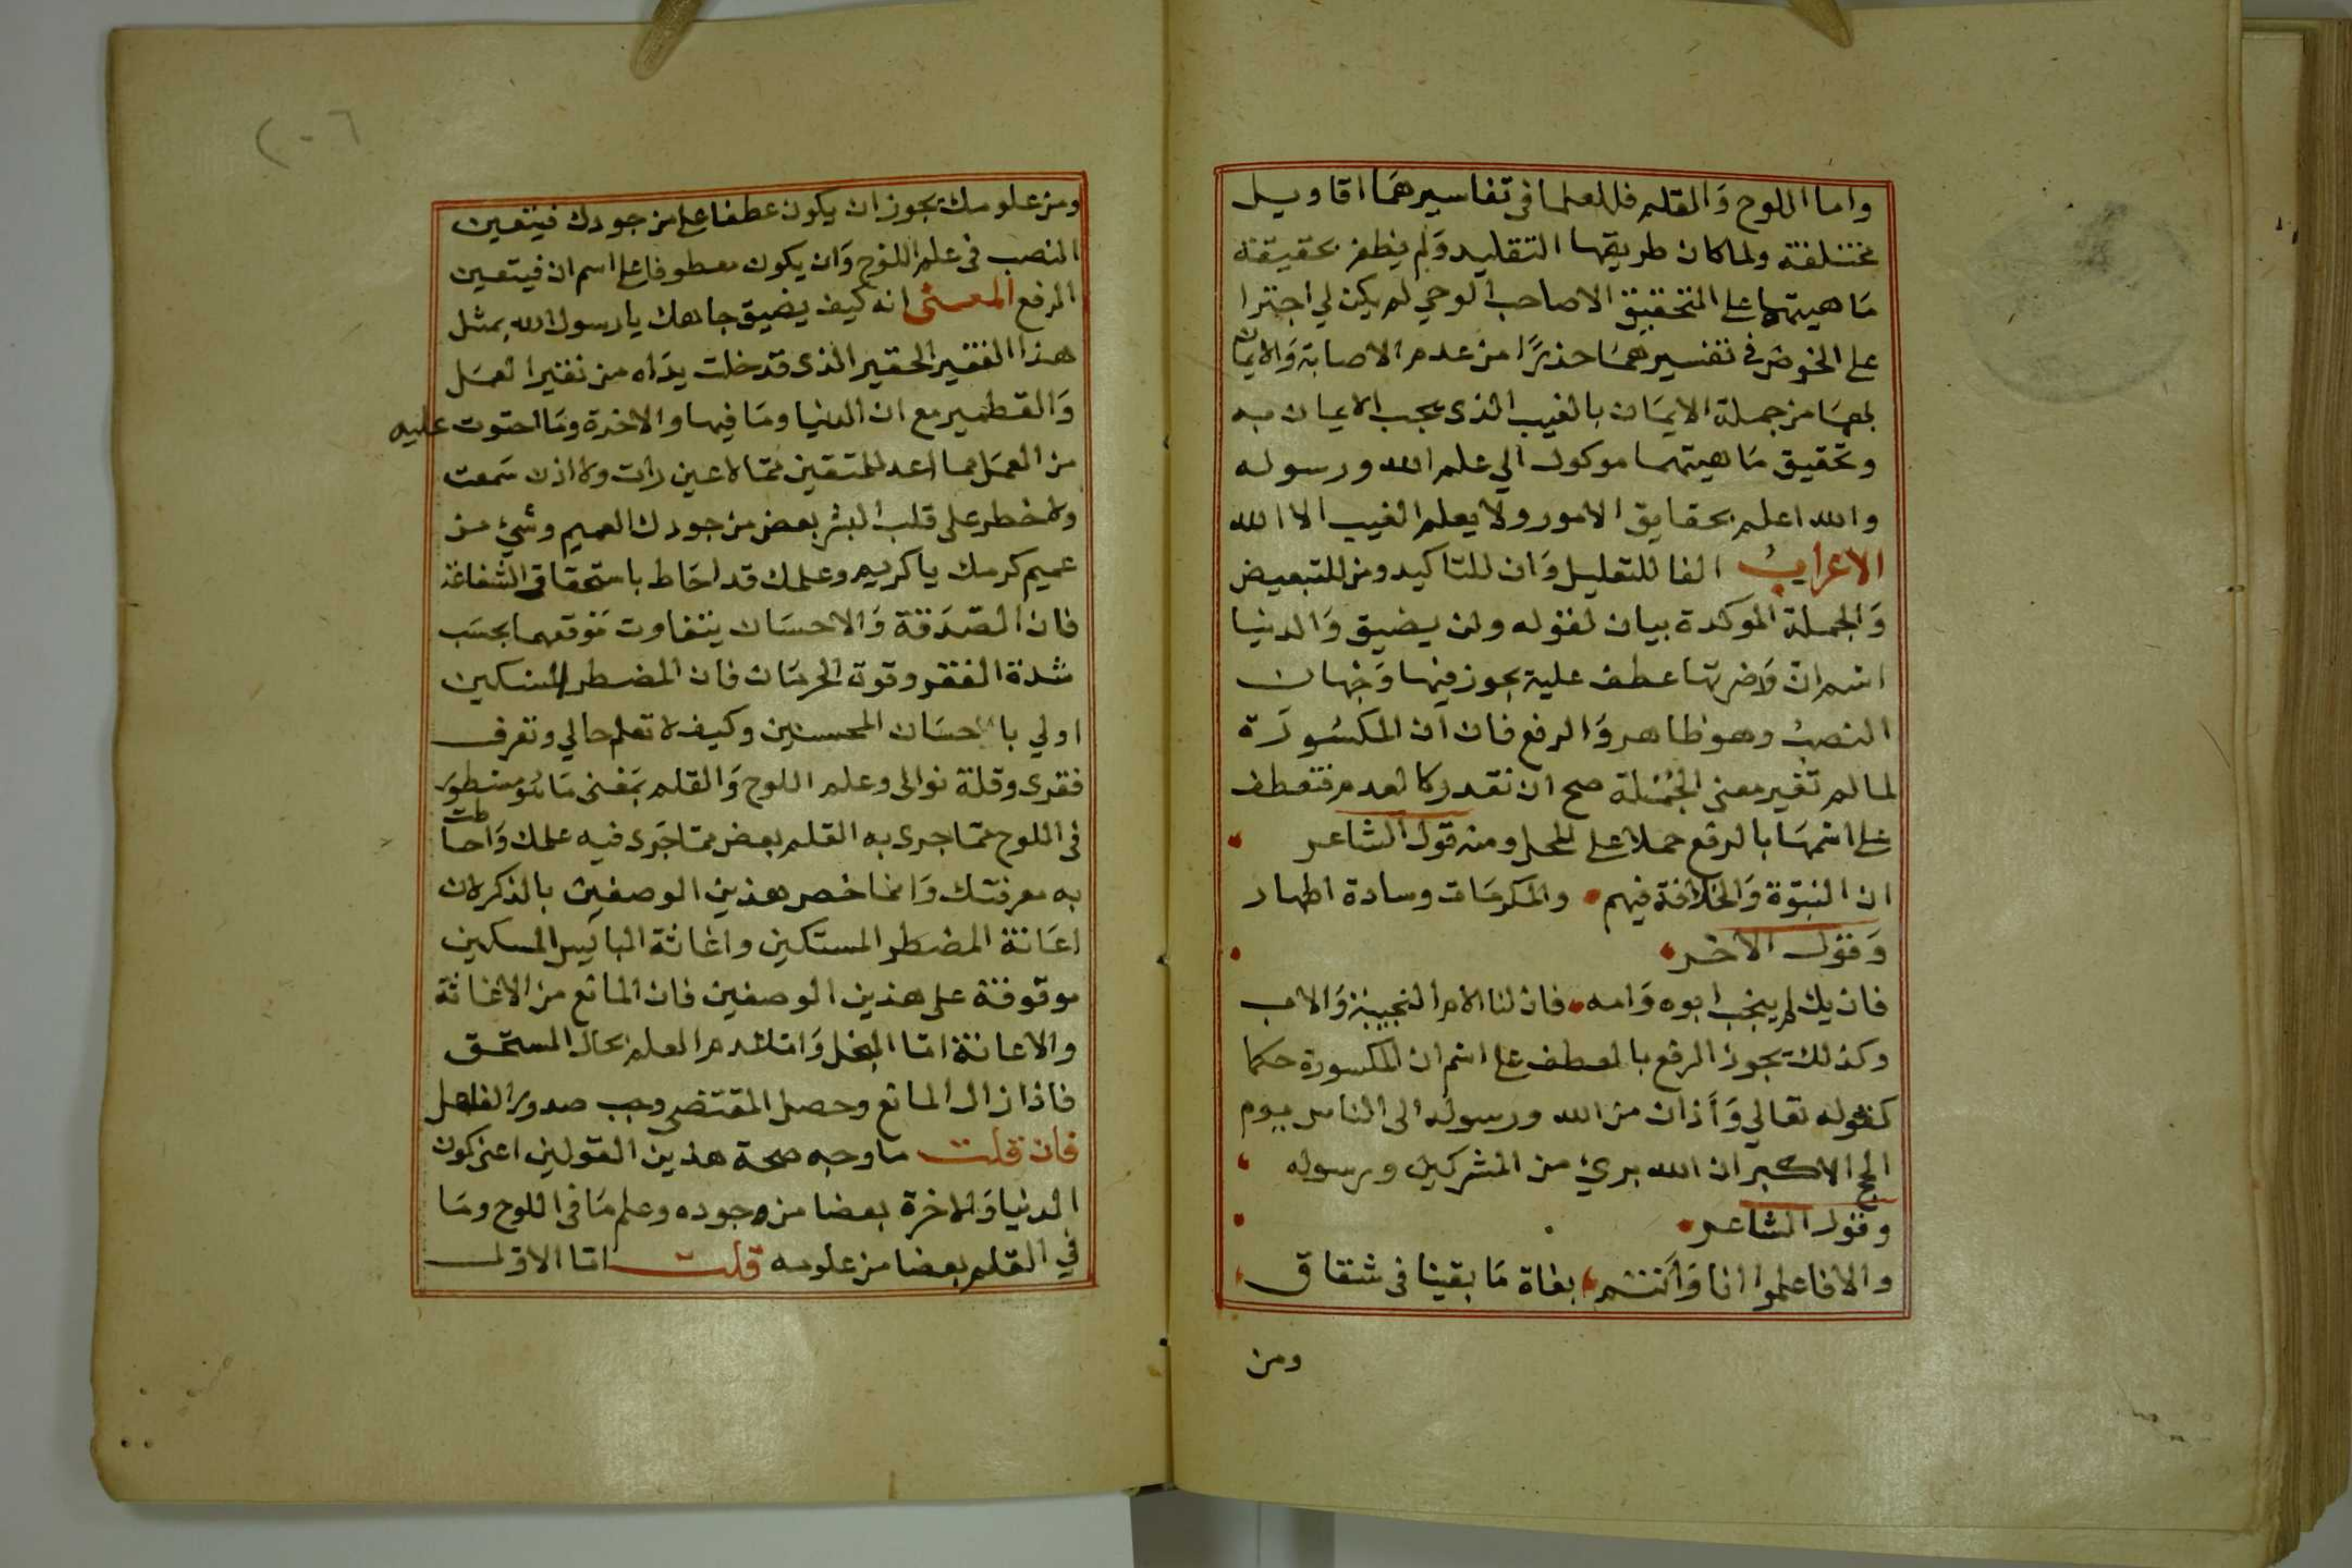 واما اللوح والقلم فللعلما فى تفاسيرهما اقاويل
مختلفة ولما كان طريقها التقليد ولم يظفر بحقيقة
ماهيتهما على التحقيق الا صاحب الوحي لم يكن لي اجترا
على الخوض في تفسيرهما حذرًا من عدم الاصابة والايمان
بهما من جملة الايمان بالغيب الذى يجب الايمان به
وتحقيق ماهيتهما موكول الي علم الله ورسوله
والله اعلم بحقايق الامور ولا يعلم الغيب الا الله
الاعراب الفا للتعليل وان للتاكيد ومن للتبعيض
والجملة الموكدة بيان لقوله ولن يضيق والدنيا
اسم ان وضرتها عطف عليه يجوز فيها وجهان
النصب وهو ظاهر والرفع فان ان المكسورة
لما لم تغير معنى الجملة صح ان تقدر كالعدم فتعطف
على اسمها بالرفع حملا على المحل ومنه قول الشاعر
ان النبوة والخلافة فيهم والمكرمات وسادة اطهار
وقول الاخر
فان يك لم ينجب ابوه وامه فان لنا الام النجيبة والاب
وكذلك يجوز الرفع بالعطف على اسم ان المكسورة حكما
كقوله تعالي وأذان من الله ورسوله الى الناس يوم
الحج الاكبر ان الله بريء من المشركين ورسوله
وقول الشاعر
والا فاعلموا انا وانتم بغاة ما بقينا فى شقاق
ومن
٢٠٦
ومن علومك يجوز ان يكون عطفا على من جودك فيتعين
النصب فى علم اللوح وان يكون معطوفا على اسم ان فيتعين
الرفع المعنى انه كيف يضيق جاهك يا رسول الله بمثل
هذا الفقير الحقير الذى قد خلت يداه من نقير العمل
والقطمير مع ان الدنيا وما فيها والاخرة وما احتوت عليه
من العمل مما اعد للمتقين مما لا عين رات ولا اذن سمعت
ولا خطر على قلب البشر بعض من جودك العميم وشيء من
عميم كرمك يا كريم وعلمك قد احاط باستحقاق الشفاعة
فان الصدقة والاحسان يتفاوت موقعهما بحسب
شدة الفقر وقوة الحرمان فان المضطر المسكين
اولي باحسان المحسنين وكيف لا تعلم حالي وتعرف
فقرى وقلة نوالى وعلم اللوح والقلم بمعنى ما هو مسطور
فى اللوح مما جرى به القلم بعض مما جرى فيه علمك واحاطت
به معرفتك وانما خصر هذين الوصفين بالذكر لان
اعانة المضطر المستكين واغاثة البايس المسكين
موقوفة على هذين الوصفين فان المانع من الاغاثة
والاعانة اما البخل واما عدم العلم بحال المستحق
فاذا زال المانع وحصل المقتضى وجب صدور الفعل
فان قلت ما وجه صحة هذين القولين اعنى كون
الدنيا والاخرة بعضا من وجوده وعلم ما فى اللوح وما
في القلم بعضا من علومه قلت اما الاول